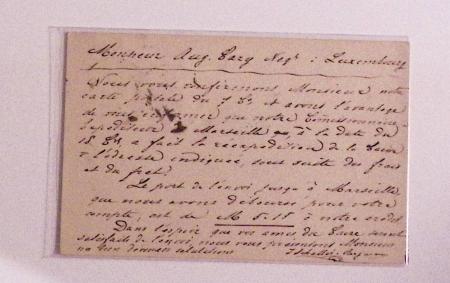 Monsieur Aug. Negt : Luxembourg
Nous vous confirmons, Monsieur notre
carte postale du 7 et avons l'avantage
de vous informer que notre Commissionnaire
Expéditeur à Marseille à la date du
18 a fait la réexpédition de la
à l'adresse indiquée, sous suite des frais
et du fret.
Le port de l'envoi jusqu'à Marseille
que nous avons déboursé pour votre
compte, est de M 5.15 à notre crédit
Dans l'espoir que vos amis du seront
satisfaits de l'envoi, nous vous présentons Monsieur
nos salutations